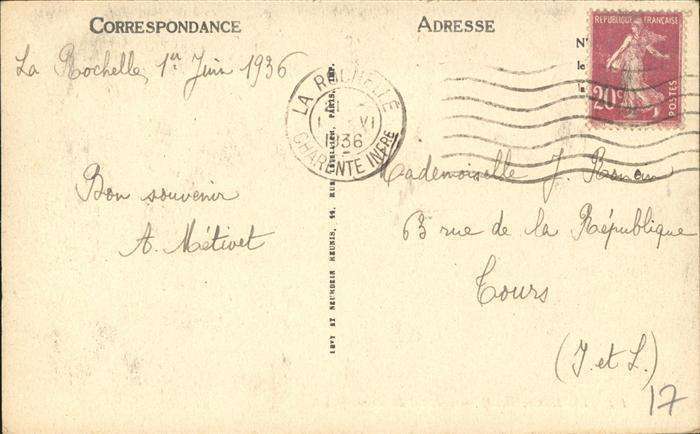 CORRESPONDANCE
ADRESSE
RÉPUBLIQUE FRANÇAISE
20c
POSTES
La Rochelle, 1er Juin 1936
LA ROCHELLE
1 VI
1936
CHARENTE INFRE
Bon souvenir
A. Métivet
Mademoiselle J.
63 rue de la République
Tours
(I. et L.)
17
LEVY ET NEURDEIN REUNIS, 44, RUE LETELLIER, PARIS, IMP.